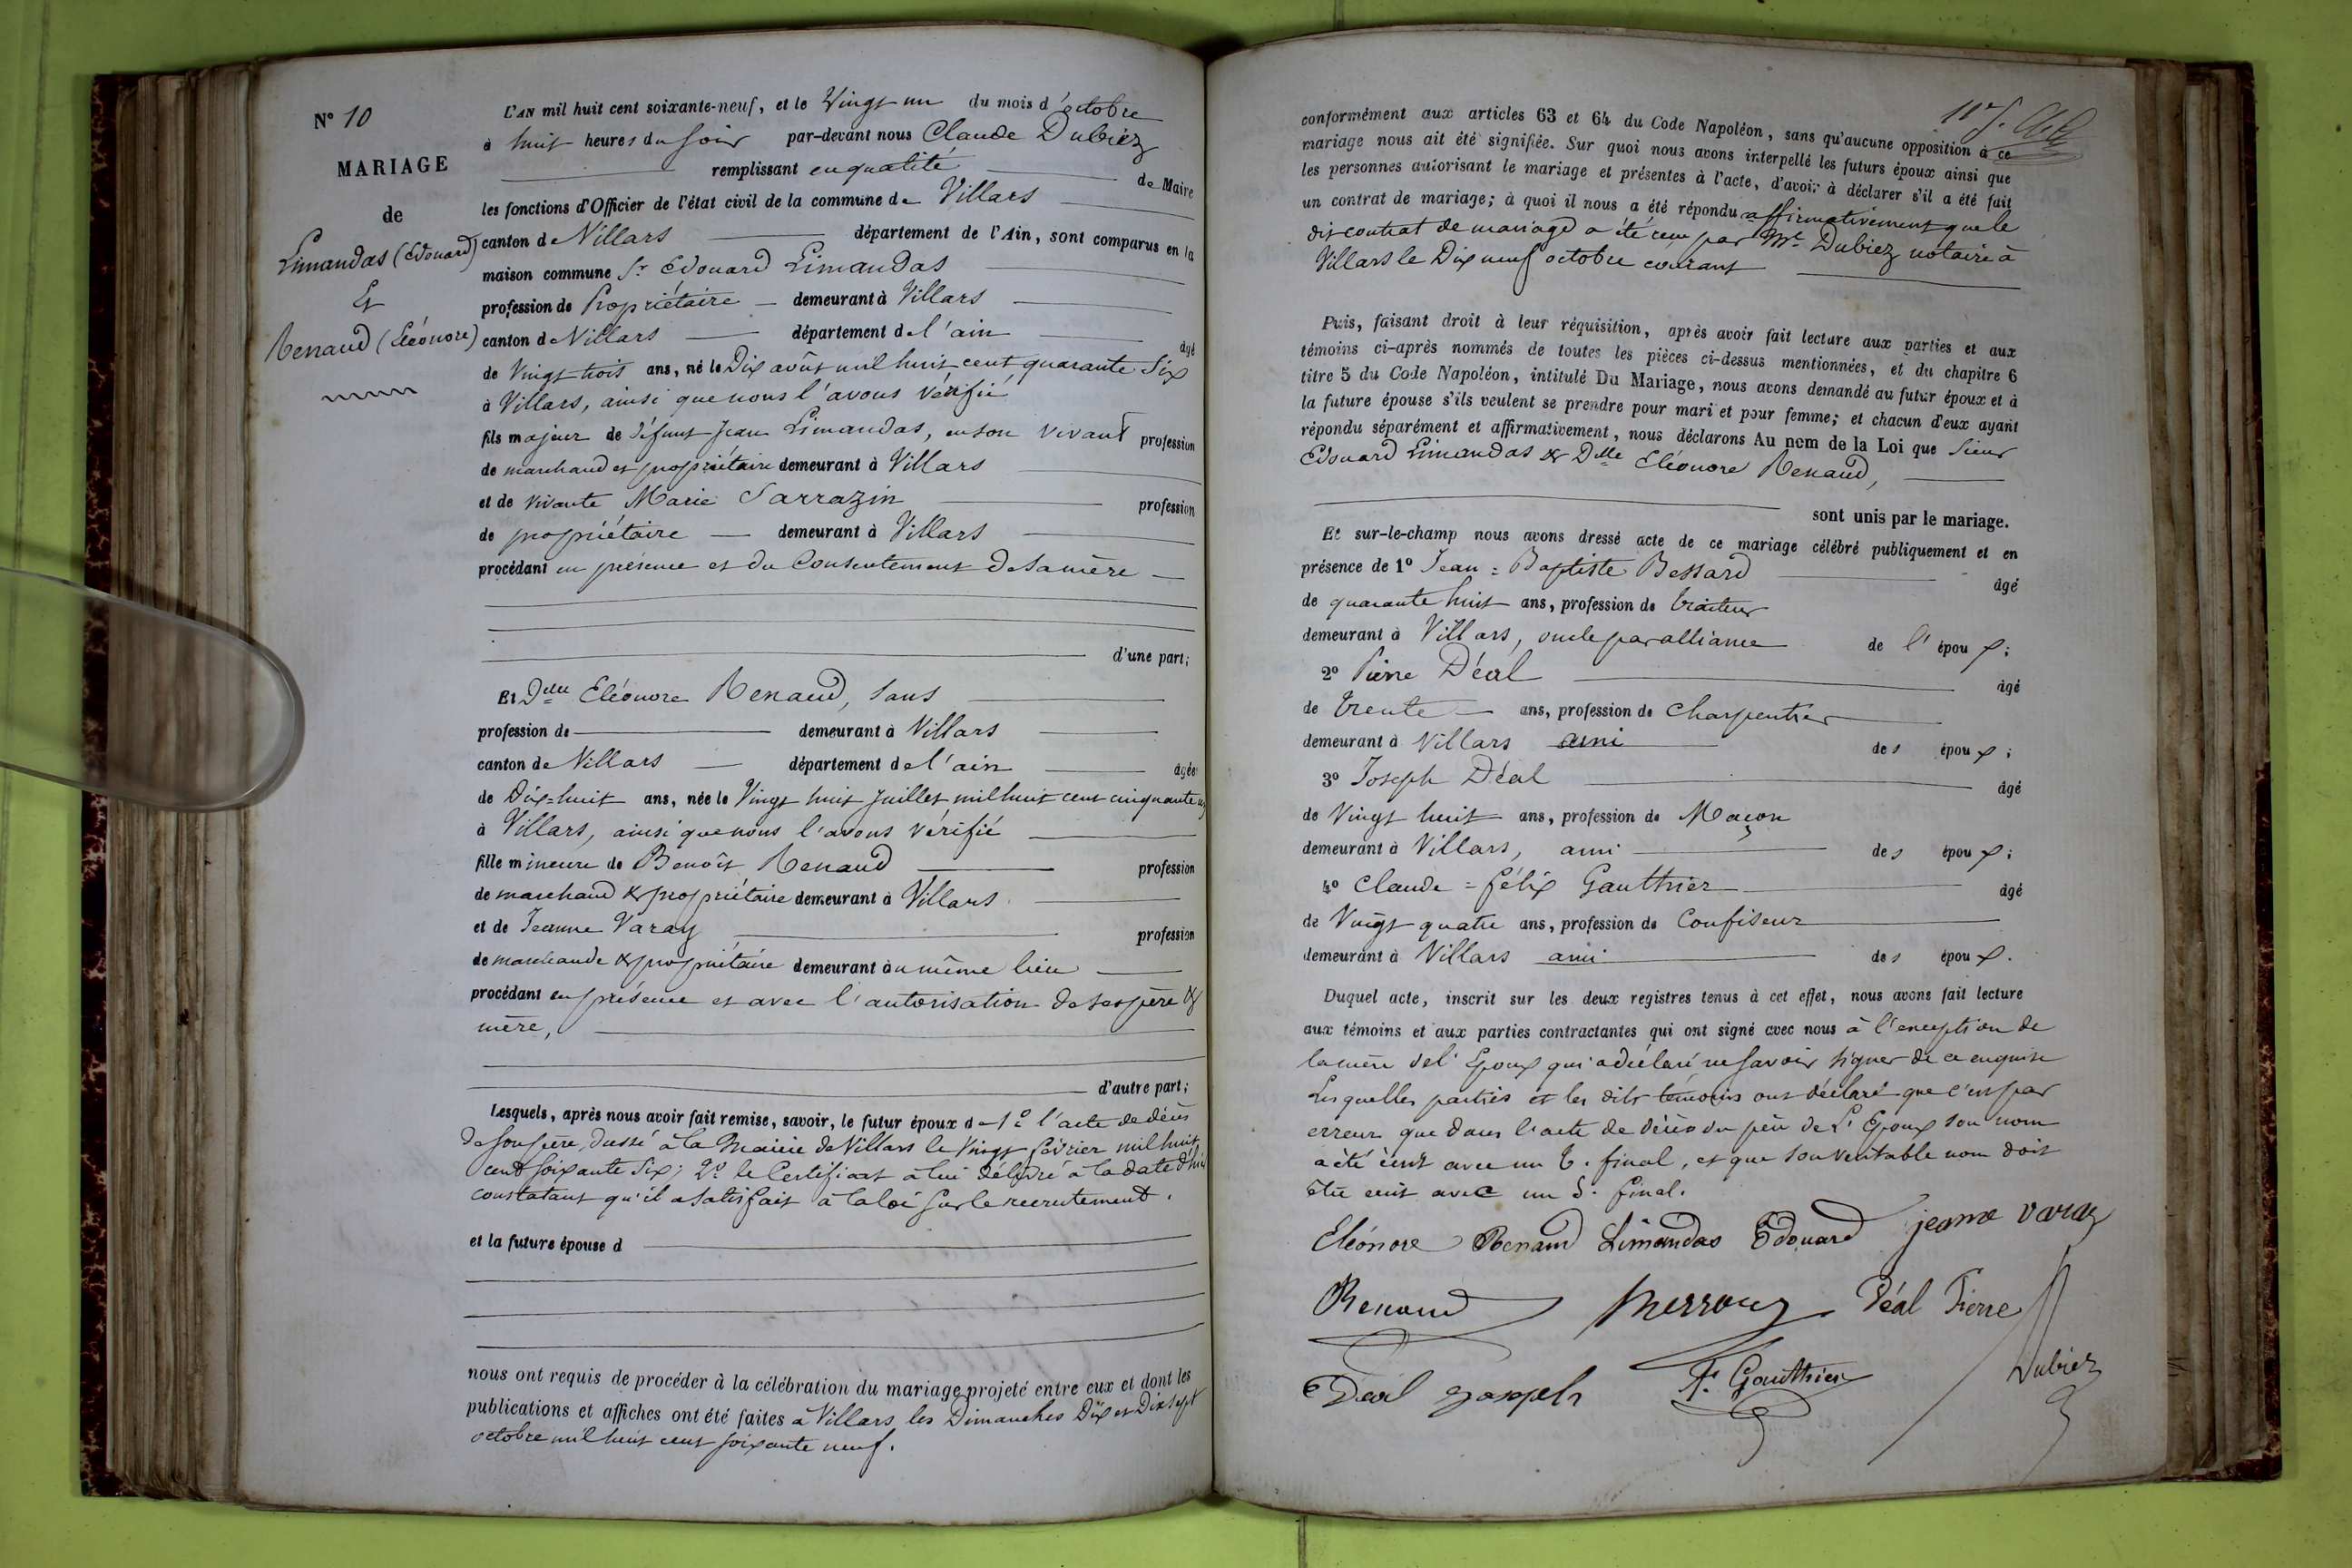 N° 10
MARIAGE
de
Limandas (Edouard)
Et
Renaud (Eléonore)
L'AN mil huit cent soixante-neuf, et le Vingt un du mois d'octobre
à huit heures du soir par-devant nous Claude Dubiez
remplissant en qualité de Maire
les fonctions d'Officier de l'état civil de la commune de Villars
canton de Villars département de l'Ain, sont comparus en la
maison commune Sr Edouard Limandas
profession de Propriétaire demeurant à Villars
canton de Villars département de l'ain âgé
de Vingt trois ans, né le Dix août mil huit cent quarante Six
à Villars, ainsi que nous l'avons vérifié
fils majeur de défunt Jean Limandas, en son vivant profession
de marchand et propriétaire demeurant à Villars
et de vivante Marie Sarrazin profession
de propriétaire demeurant à Villars
procédant en présence et du Consentement de sa mère
d'une part;
Et Delle Eléonore Renaud, sans
profession de demeurant à Villars
canton de Villars département de l'ain âgée
de Dix-huit ans, née le Vingt huit Juillet mil huit cent cinquante un
à Villars, ainsi que nous l'avons vérifié
fille mineure de Benoît Renaud profession
de marchand & propriétaire demeurant à Villars
et de Jeanne Varay profession
de marchande & propriétaire demeurant au même lieu
procédant en présence et avec l'autorisation de ses père &
mère,
d'autre part;
Lesquels, après nous avoir fait remise, savoir, le futur époux de 1° l'acte de décès
de son père, dressé à la Mairie de Villars le Vingt février mil huit
cent soixante Six; 2° le Certificat à lui délivré à la date d'hier
constatant qu'il a satisfait à la loi sur le recrutement.
et la future épouse d
nous ont requis de procéder à la célébration du mariage projeté entre eux et dont les
publications et affiches ont été faites à Villars les Dimanches Dix et Dix sept
octobre mil huit cent soixante neuf.
conformément aux articles 63 et 64 du Code Napoléon, sans qu'aucune opposition à ce
mariage nous ait été signifiée. Sur quoi nous avons interpellé les futurs époux ainsi que
les personnes autorisant le mariage et présentes à l'acte, d'avoir à déclarer s'il a été fait
un contrat de mariage; à quoi il nous a été répondu affirmativement que le
dit contrat de mariage a été reçu par Me Dubiez notaire à
Villars le Dix neuf octobre courant
Puis, faisant droit à leur réquisition, après avoir fait lecture aux parties et aux
témoins ci-après nommés de toutes les pièces ci-dessus mentionnées, et du chapitre 6
titre 5 du Code Napoléon, intitulé Du Mariage, nous avons demandé au futur époux et à
la future épouse s'ils veulent se prendre pour mari et pour femme; et chacun d'eux ayant
répondu séparément et affirmativement, nous déclarons Au nom de la Loi que Sieur
Edouard Limandas & Delle Eléonore Renaud,
sont unis par le mariage.
Et sur-le-champ nous avons dressé acte de ce mariage célébré publiquement et en
présence de 1° Jean-Baptiste Bessard âgé
de quarante huit ans, profession de traiteur
demeurant à Villars, oncle par alliance de l'époux;
2° Pierre Déal âgé
de trente ans, profession de Charpentier
demeurant à Villars ami des époux;
3° Joseph Déal âgé
de Vingt huit ans, profession de Maçon
demeurant à Villars, ami des époux;
4° Claude-Félix Gauthier âgé
de Vingt quatre ans, profession de Confiseur
demeurant à Villars ami des époux.
Duquel acte, inscrit sur les deux registres tenus à cet effet, nous avons fait lecture
aux témoins et aux parties contractantes qui ont signé avec nous à l'exception de
la mère de l'Epoux qui a déclaré ne savoir signer de ce enquise
Lesquelles parties et les dits témoins ont déclaré que c'est par
erreur que dans l'acte de décès du père de l'Epoux son nom
a été écrit avec un t. final, et que son véritable nom doit
être écrit avec un S. final.
Eléonore Renaud Limandas Edouard jeanne varay
Renaud Déal Pierre
Déal Joseph F. Gauthier Dubiez